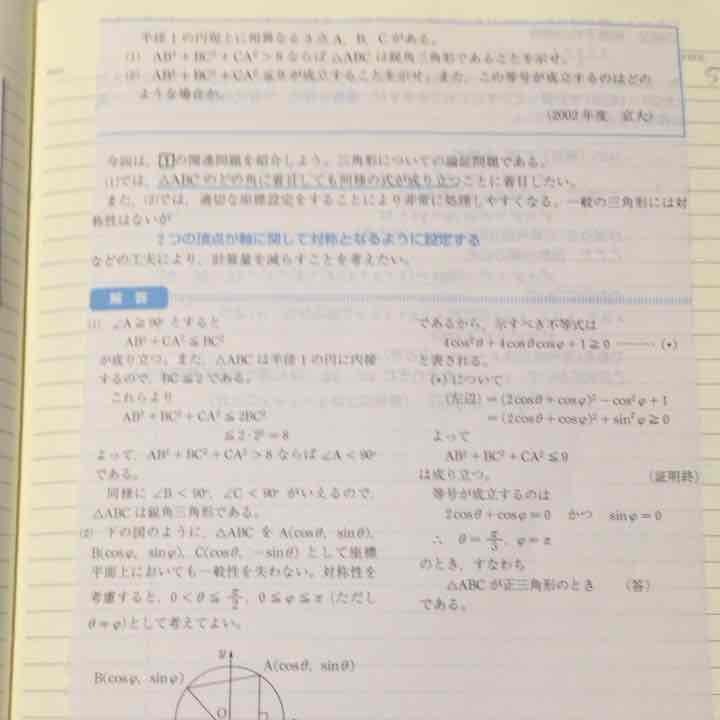 半径1の円周上に相異なる3点A，B，Cがある。
(1) AB²+BC²+CA²>8ならば△ABCは鋭角三角形であることを示せ。
(2) AB²+BC²+CA²≦9が成立することを示せ。また，この等号が成立するのはどの
ような場合か。
(2002年度 京大)
今回は，1の関連問題を紹介しよう。三角形についての論証問題である。
(1)では，△ABCのどの角に着目しても同様の式が成り立つことに着目したい。
また，(2)では，適切な座標設定をすることにより非常に処理しやすくなる。一般の三角形には対
称性はないが
2つの頂点が軸に関して対称となるように設定する
などの工夫により，計算量を減らすことを考えたい。
解答
(1) ∠A≧90°とすると
AB²+CA²≦BC²
が成り立つ。また，△ABCは半径1の円に内接
するので，BC≦2である。
これらより
AB²+BC²+CA²≦2BC²
≦2・2²=8
よって，AB²+BC²+CA²>8ならば∠A<90°
である。
同様に∠B<90°，∠C<90°がいえるので，
△ABCは鋭角三角形である。
(2) 下の図のように，△ABCをA(cosθ, sinθ)，
B(cosφ, sinφ)，C(cosθ, −sinθ)として座標
平面上においても一般性を失わない。対称性を
考慮すると，0<θ≦π/2，0≦φ≦π（ただし
θ≠φ）として考えてよい。
B(cosφ, sinφ)
y
A(cosθ, sinθ)
O
であるから，示すべき不等式は
4cos²θ+4cosθcosφ+1≧0 ……… (*)
と表される。
(*)について
(左辺)=(2cosθ+cosφ)²−cos²φ+1
=(2cosθ+cosφ)²+sin²φ≧0
よって
AB²+BC²+CA²≦9
は成り立つ。 (証明終)
等号が成立するのは
2cosθ+cosφ=0 かつ sinφ=0
∴ θ=π/3, φ=π
のとき，すなわち
△ABCが正三角形のとき (答)
である。